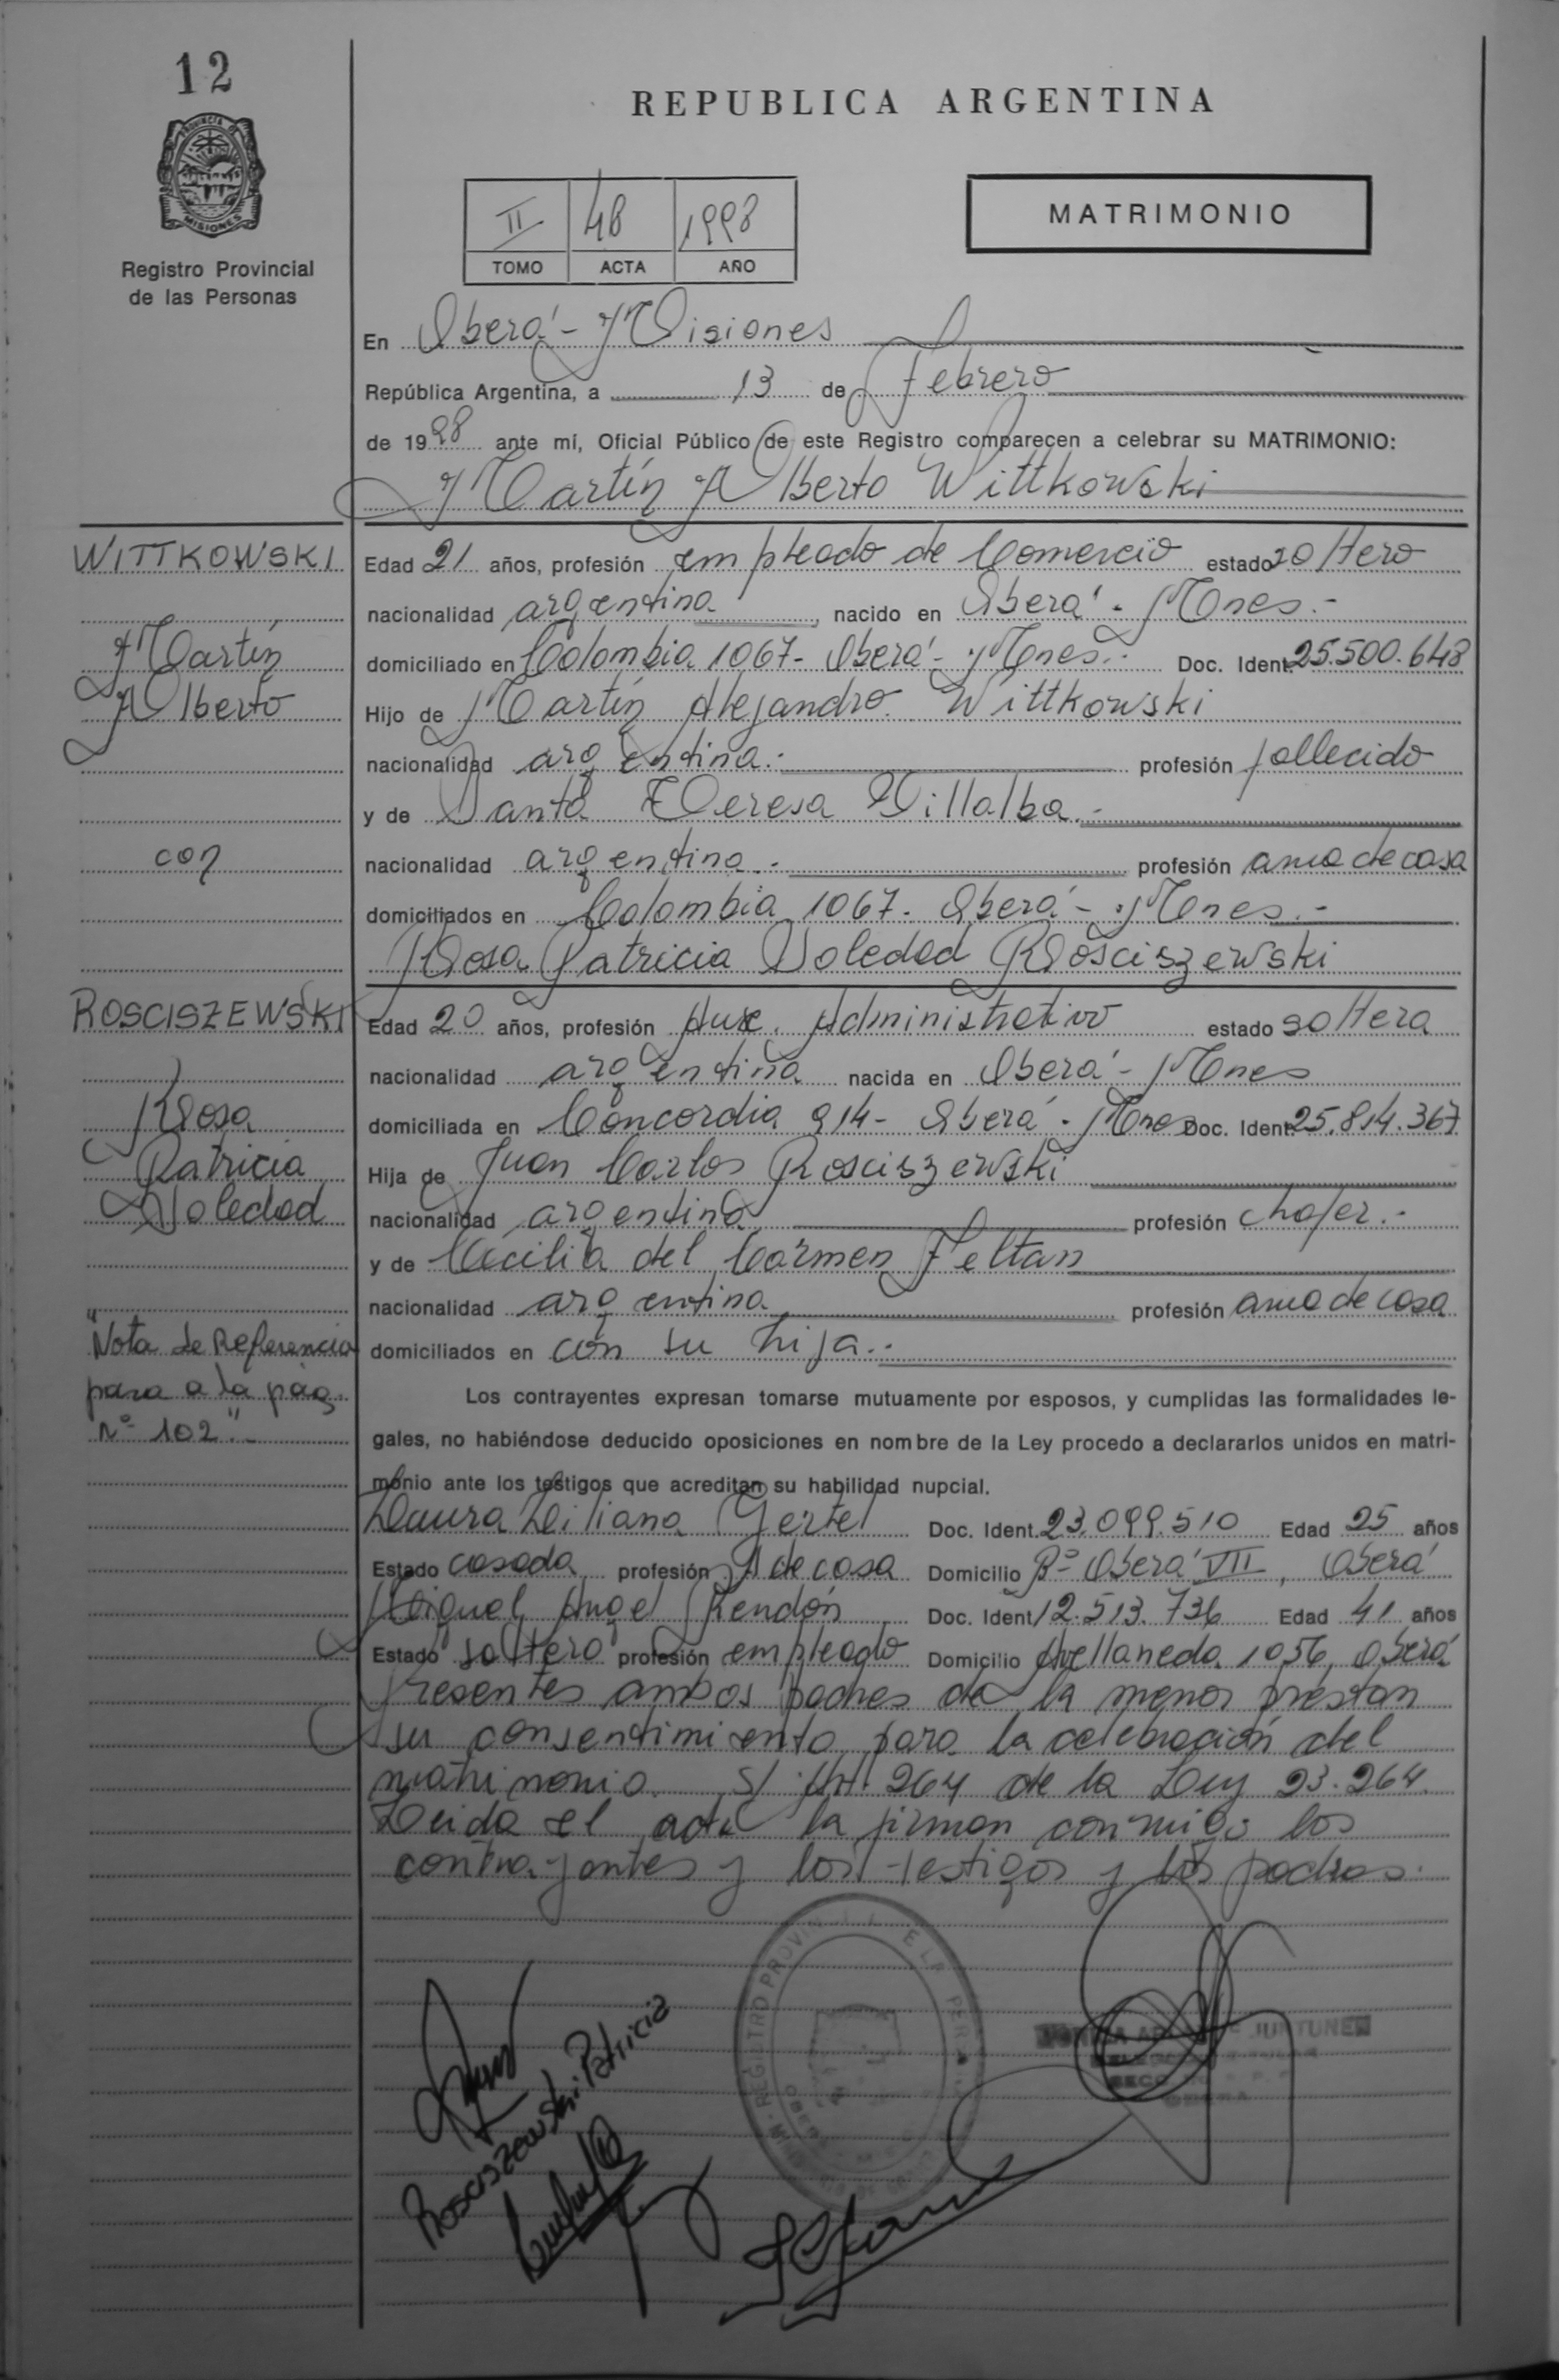 12
REPUBLICA ARGENTINA
PROVINCIA DE
MISIONES
Registro Provincial
de las Personas
II 48 1998
TOMO ACTA AÑO
MATRIMONIO
En Oberá - Misiones
República Argentina, a 13 de Febrero
de 1998 ante mí, Oficial Público de este Registro comparecen a celebrar su MATRIMONIO:
Martín Alberto Wittkowski
WITTKOWSKI
Martín
Alberto
con
ROSCISZEWSKI
Rosa
Patricia
Soledad
"Nota de Referencia
pasa a la pág.
Nº 102".-
Edad 21 años, profesión empleado de Comercio estado soltero
nacionalidad argentina, nacido en Oberá - Mnes.-
domiciliado en Colombia 1067- Oberá - Mnes.- Doc. Ident. 25.500.648
Hijo de Martín Alejandro Wittkowski
nacionalidad argentina.- profesión fallecido
y de Santa Teresa Villalba.-
nacionalidad argentina.- profesión ama de casa
domiciliados en Colombia 1067- Oberá - Mnes.-
Rosa Patricia Soledad Rosciszewski
Edad 20 años, profesión Aux. Administrativo estado soltera
nacionalidad argentina nacida en Oberá - Mnes
domiciliada en Concordia 914- Oberá - Mnes Doc. Ident. 25.814.367
Hija de Juan Carlos Rosciszewski
nacionalidad argentina profesión chofer.-
y de Cecilia del Carmen Feltan
nacionalidad argentina profesión ama de casa
domiciliados en con su hija.-
Los contrayentes expresan tomarse mutuamente por esposos, y cumplidas las formalidades le-
gales, no habiéndose deducido oposiciones en nombre de la Ley procedo a declararlos unidos en matri-
monio ante los testigos que acreditan su habilidad nupcial.
Laura Liliana Gertel Doc. Ident. 23.099.510 Edad 25 años
Estado casada profesión A de casa Domicilio Bº Oberá VII, Oberá
Miguel Angel Rendón Doc. Ident. 12.513.736 Edad 41 años
Estado soltero profesión empleado Domicilio Avellaneda 1056, Oberá
Presentes ambos padres de la menor prestan
su consentimiento para la celebración del
matrimonio S/ Art. 264 de la Ley 23.264.
Leida el acta la firman conmigo los
contrayentes y los testigos y los padres.
Rosciszewski Patricia
JUNTUNEN